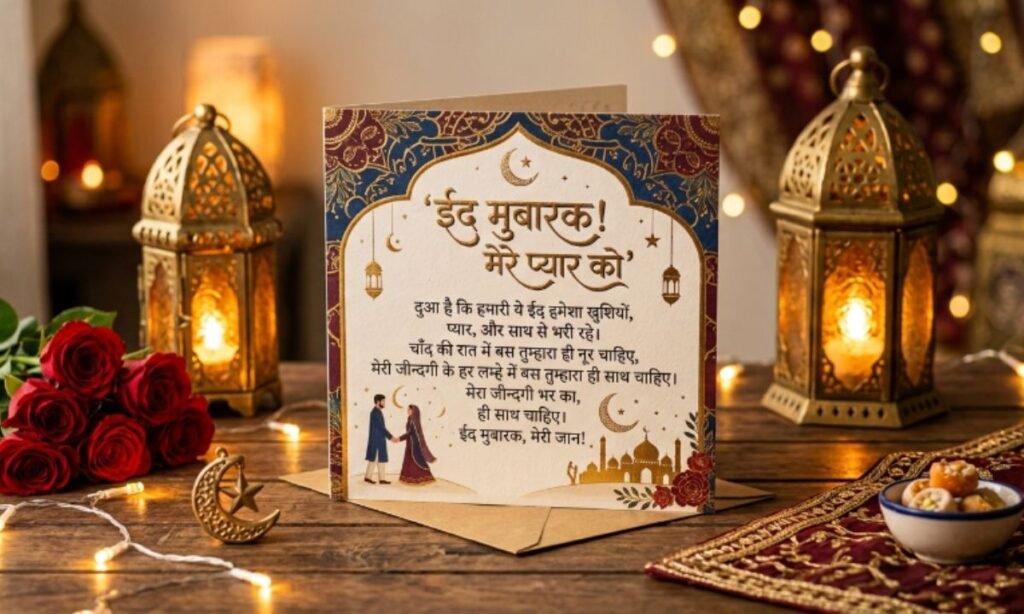 ‘ईद मुबारक!
मेरे प्यार को’
दुआ है कि हमारी ये ईद हमेशा खुशियों,
प्यार, और साथ से भरी रहे।
चाँद की रात में बस तुम्हारा ही नूर चाहिए,
मेरी जीन्दगी के हर लम्हे में बस तुम्हारा ही साथ चाहिए।
मेरा जीन्दगी भर का,
ही साथ चाहिए।
ईद मुबारक, मेरी जान!